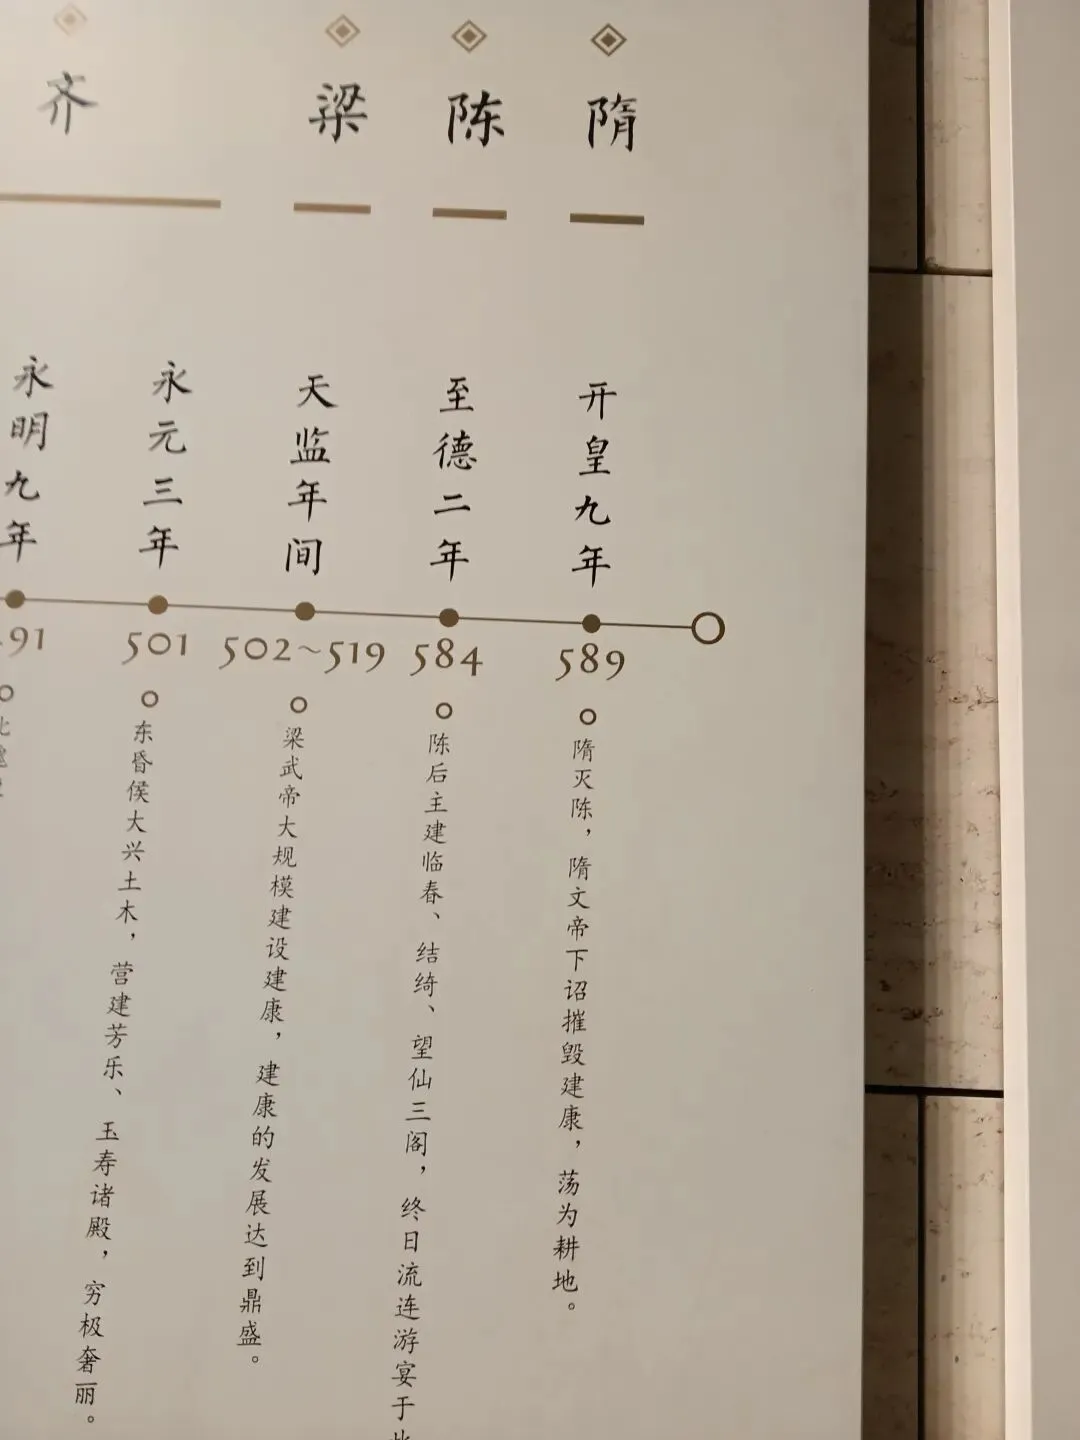 齐
梁
陈
隋
永明九年
永元三年
天监年间
至德二年
开皇九年
491
501
502~519
584
589
东昏侯大兴土木，营建芳乐、玉寿诸殿，穷极奢丽。
梁武帝大规模建设建康，建康的发展达到鼎盛。
陈后主建临春、结绮、望仙三阁，终日流连游宴于
隋灭陈，隋文帝下诏摧毁建康，荡为耕地。